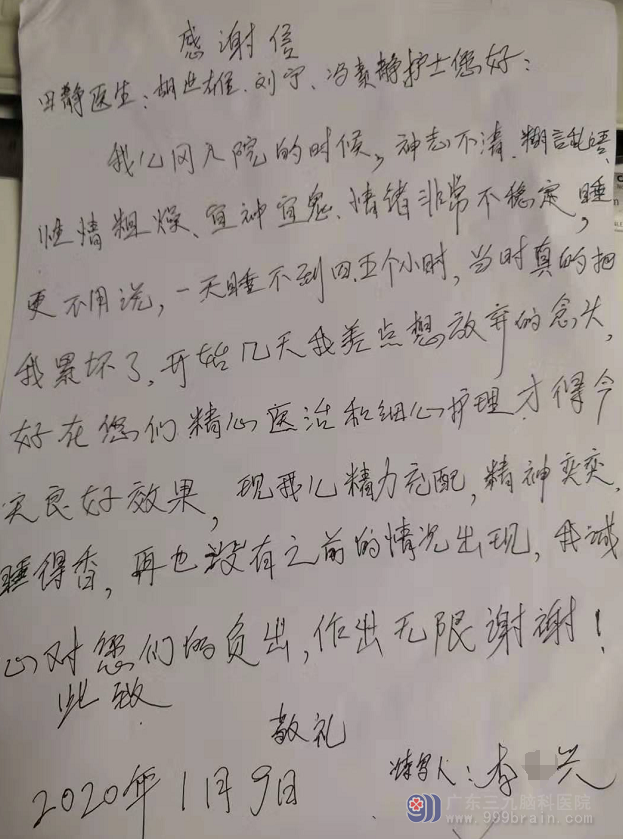 感谢信
田静医生：胡世雄、刘宁、冯素静护士您好：
我儿冈入院的时候，神志不清、糊言乱语、
性情粗燥、宜神宜鬼、情绪非常不稳定，睡
更不用说，一天睡不到四.五个小时，当时真的把
我累坏了，开始几天我差点想放弃的念头，
好在您们精心医治和细心护理，才得今
天良好效果，现我儿精力充配，精神奕奕，
睡得香，再也没有之前的情况出现，我诚
心对您们的负出，作出无限谢谢！
此致
敬礼
人：李 兴
2020年1月9日
广东三九脑科医院
www.999brain.com